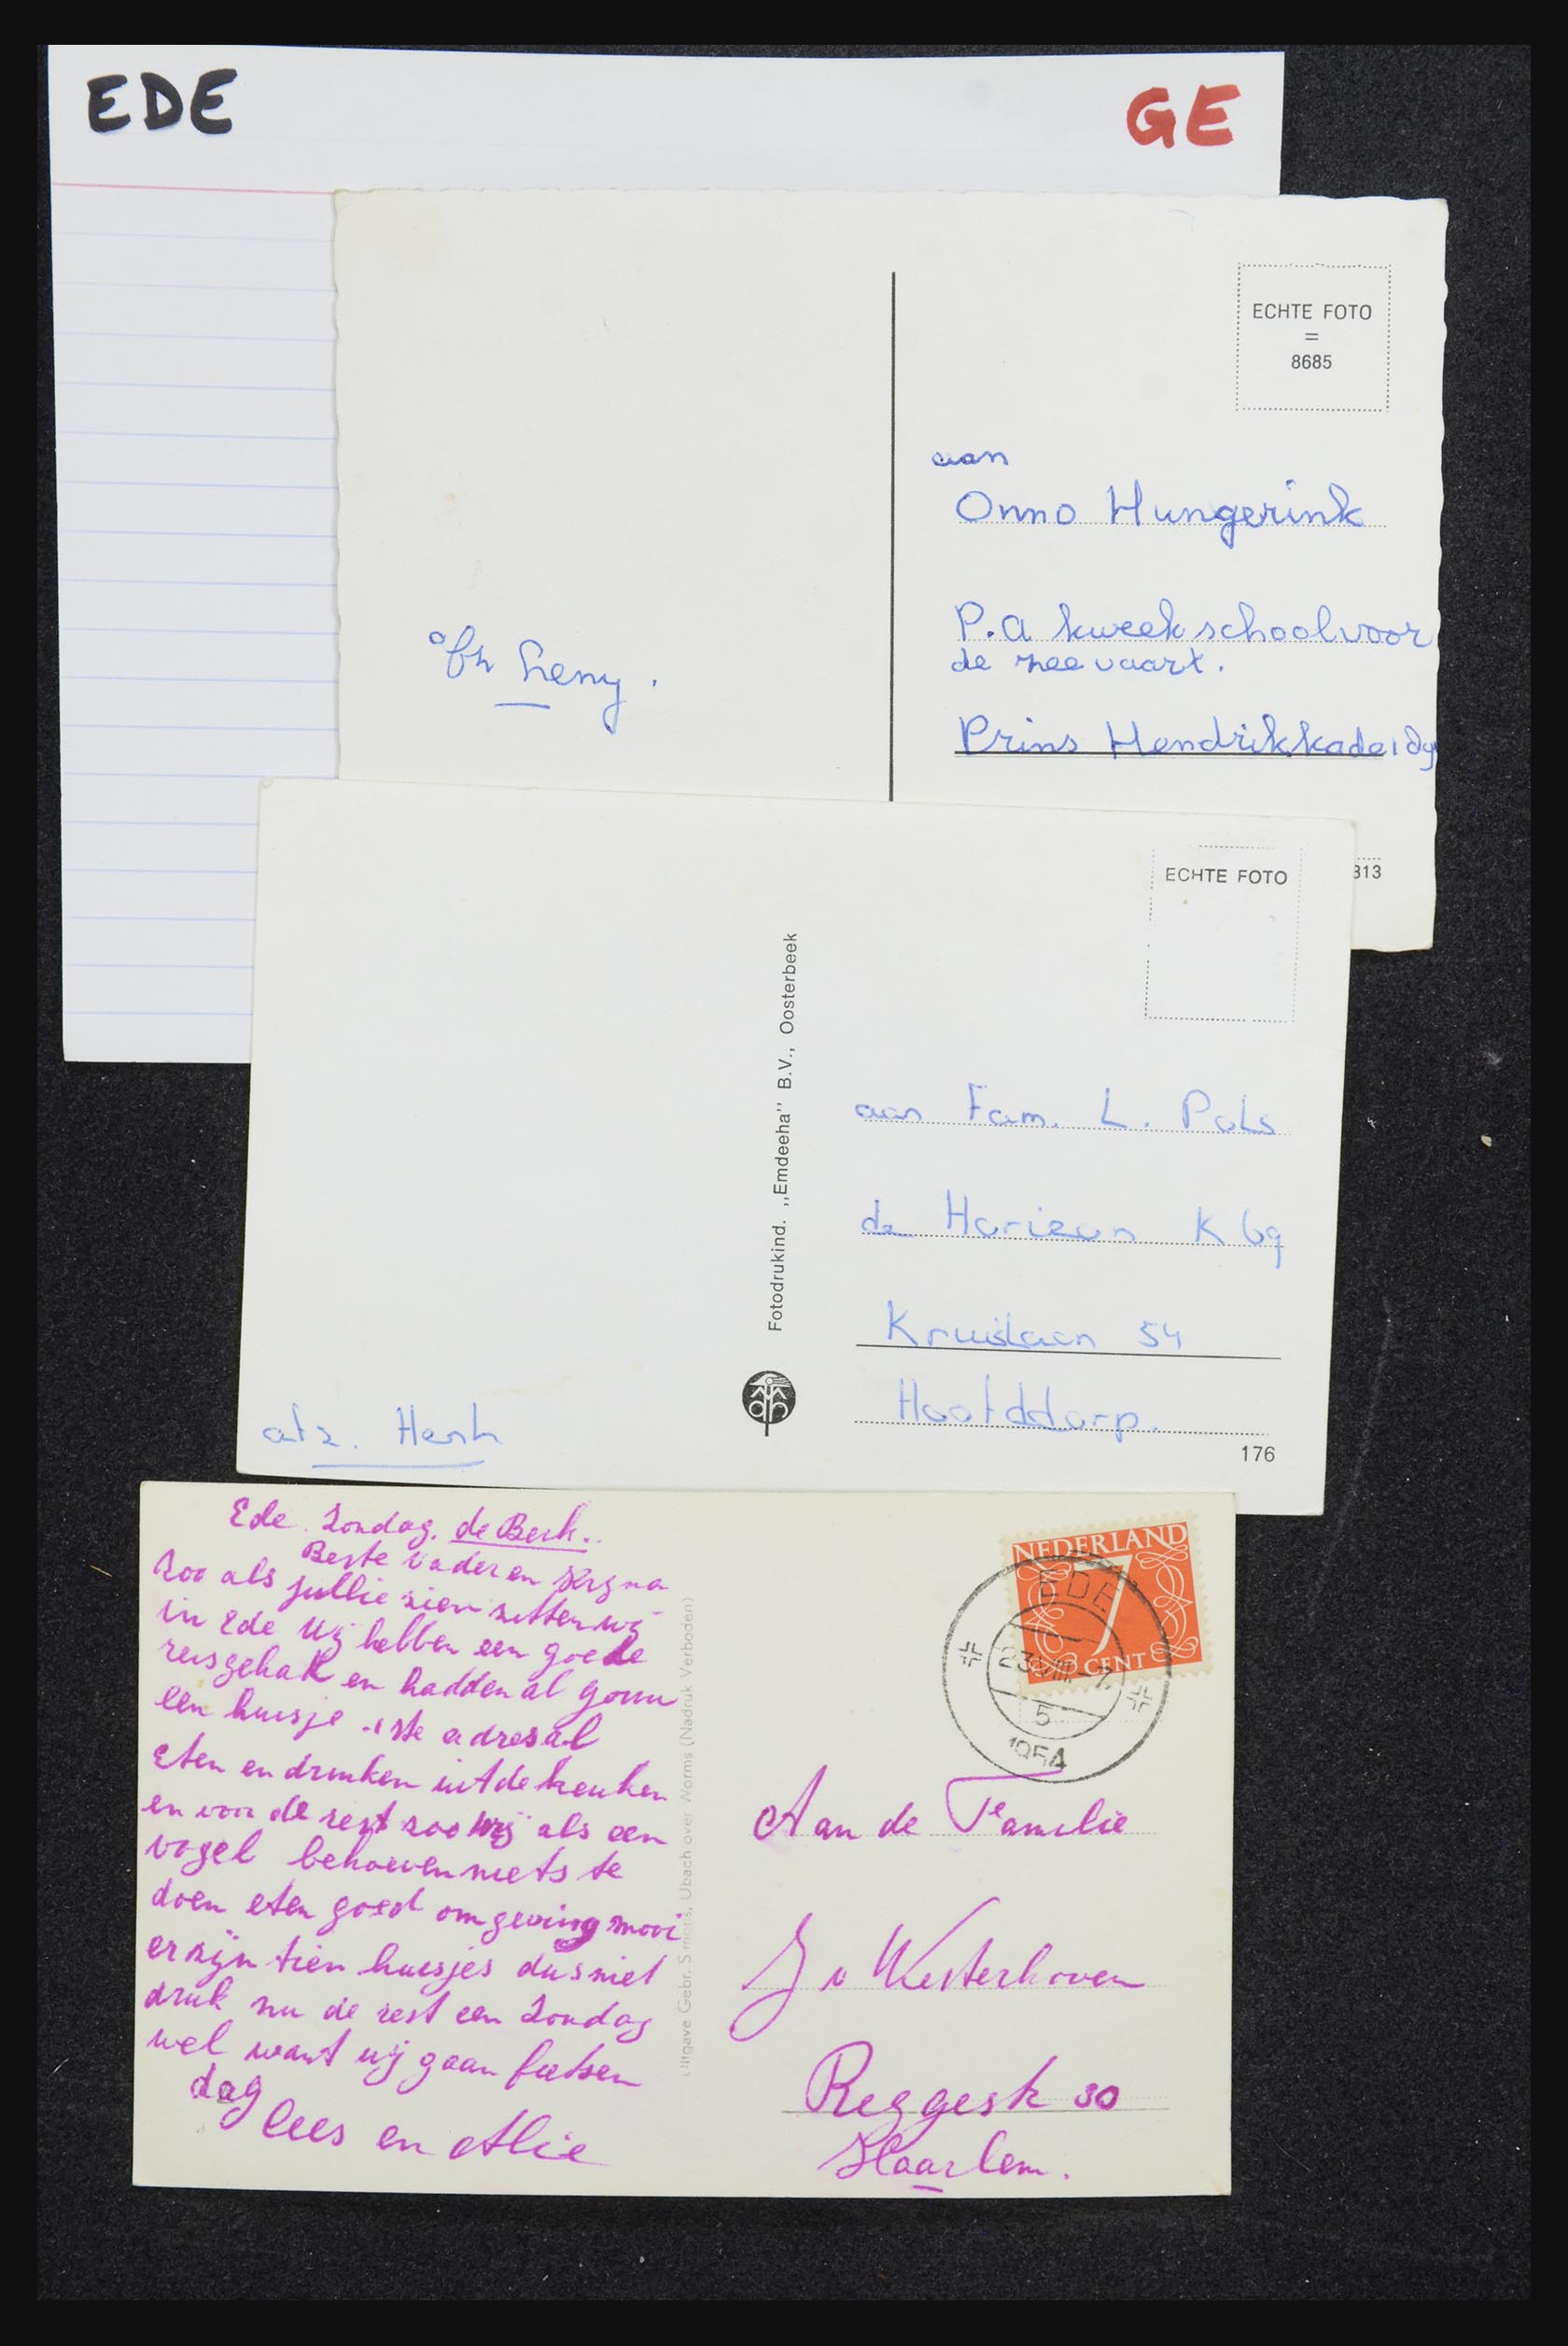 EDE
GE
ECHTE FOTO
=
8685
aan
Onno Hungerink
P.a kweekschool voor
de zeevaart.
Prins Hendrikkade
afz Leny.
313
ECHTE FOTO
Fotodrukind. „Emdeeha” B.V., Oosterbeek
aan Fam. L. Pols
de Horizon K 69
Kruislaan 54
Hoofddorp.
afz. Henk
176
Ede. Zondag. de Berk..
Beste Vader en
Zoo als jullie zien zitten wij
in Ede Wij hebben een goede
reis gehad en hadden al gouw
een huisje adres al
Eten en drinken uit de keuken
en voor de rest zoo vrij als een
vogel behoeven niets te
doen eten goed omgeving mooi
er zijn tien huisjes dus niet
druk nu de rest een Zondag
wel want wij gaan fietsen
dag
Cees en Alie
Uitgave Gebr. Simons, Ubach over Worms (Nadruk Verboden)
NEDERLAND
7
CENT
EDE
23 VIII
5
1954
Aan de Familie
J v Westerhoven
Reggestr 30
Haarlem.